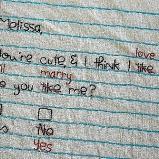 Melissa,
love
You're cute & I think I like
marry
you like me?
No
Yes